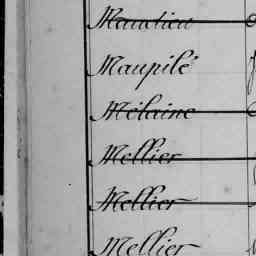 Maudieu
Maupilé
Mélaine
Mellier
Mellier
Mellier